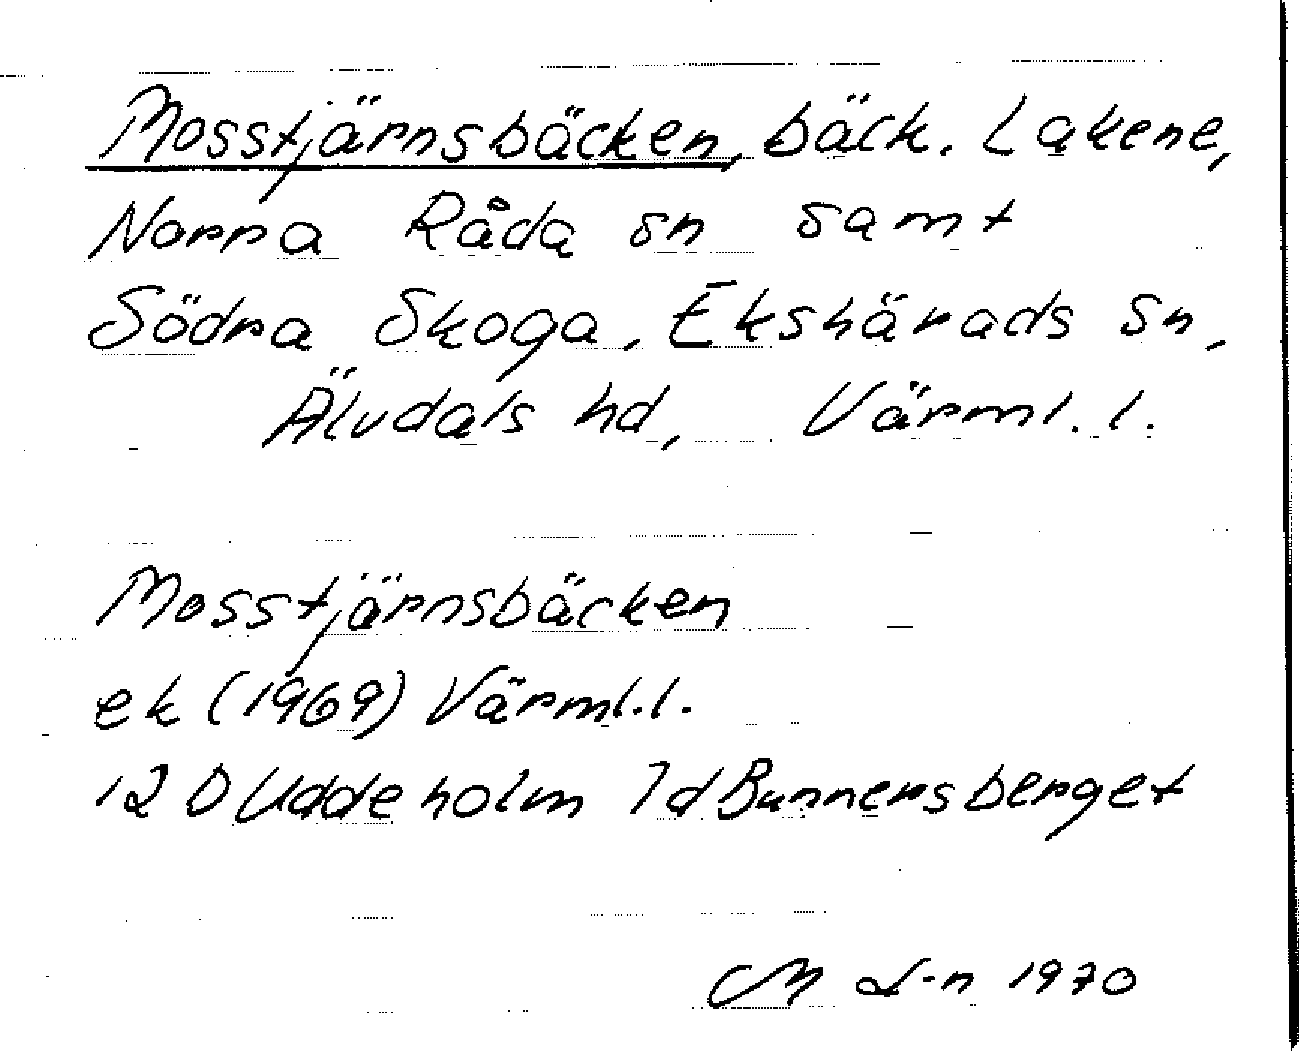 Mosstjärnsbäcken, bäck. Lakene,
Norra Råda sn samt
Södra Skoga, Ekshärads sn,
Älvdals hd, Värml. l.
Mosstjärnsbäcken
ek (1969) Värml. l.
12 D Uddeholm 7d Bunnersberget
M L-n 1970